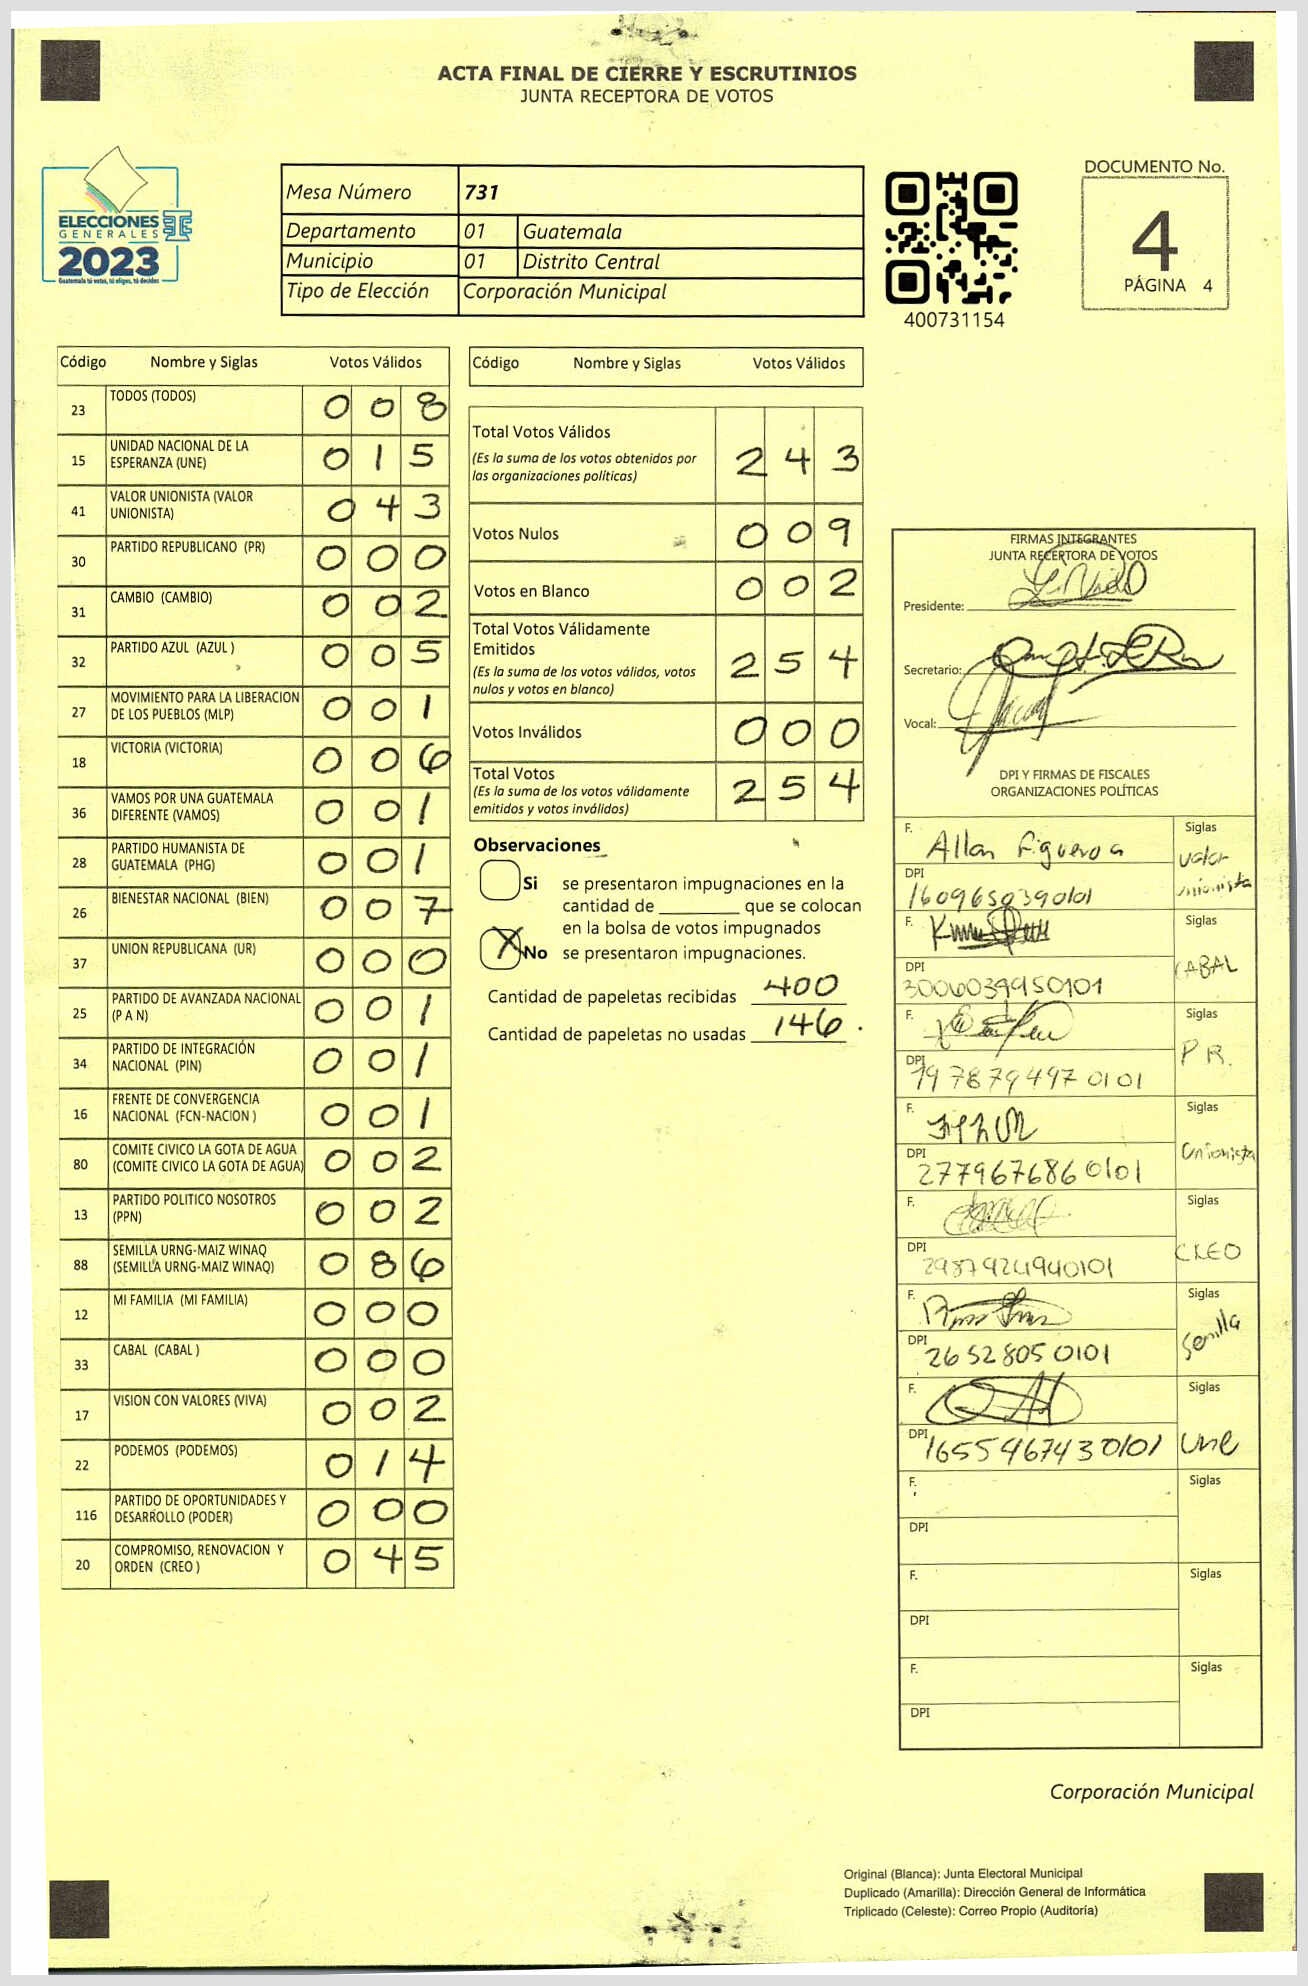 ACTA FINAL DE CIERRE Y ESCRUTINIOS
JUNTA RECEPTORA DE VOTOS
ELECCIONES
GENERALES
2023
Guatemala tú votas, tú eliges, tú decides
Mesa Número 731
Departamento 01 Guatemala
Municipio 01 Distrito Central
Tipo de Elección Corporación Municipal
400731154
DOCUMENTO No.
4
PÁGINA 4
Código Nombre y Siglas Votos Válidos
23 TODOS (TODOS) 0 0 8
15 UNIDAD NACIONAL DE LA
ESPERANZA (UNE) 0 1 5
41 VALOR UNIONISTA (VALOR
UNIONISTA) 0 4 3
30 PARTIDO REPUBLICANO (PR) 0 0 0
31 CAMBIO (CAMBIO) 0 0 2
32 PARTIDO AZUL (AZUL ) 0 0 5
27 MOVIMIENTO PARA LA LIBERACION
DE LOS PUEBLOS (MLP) 0 0 1
18 VICTORIA (VICTORIA) 0 0 6
36 VAMOS POR UNA GUATEMALA
DIFERENTE (VAMOS) 0 0 1
28 PARTIDO HUMANISTA DE
GUATEMALA (PHG) 0 0 1
26 BIENESTAR NACIONAL (BIEN) 0 0 7
37 UNION REPUBLICANA (UR) 0 0 0
25 PARTIDO DE AVANZADA NACIONAL
(P A N) 0 0 1
34 PARTIDO DE INTEGRACIÓN
NACIONAL (PIN) 0 0 1
16 FRENTE DE CONVERGENCIA
NACIONAL (FCN-NACION ) 0 0 1
80 COMITE CIVICO LA GOTA DE AGUA
(COMITE CIVICO LA GOTA DE AGUA) 0 0 2
13 PARTIDO POLITICO NOSOTROS
(PPN) 0 0 2
88 SEMILLA URNG-MAIZ WINAQ
(SEMILLA URNG-MAIZ WINAQ) 0 8 6
12 MI FAMILIA (MI FAMILIA) 0 0 0
33 CABAL (CABAL ) 0 0 0
17 VISION CON VALORES (VIVA) 0 0 2
22 PODEMOS (PODEMOS) 0 1 4
116 PARTIDO DE OPORTUNIDADES Y
DESARROLLO (PODER) 0 0 0
20 COMPROMISO, RENOVACION Y
ORDEN (CREO ) 0 4 5
Código Nombre y Siglas Votos Válidos
Total Votos Válidos
(Es la suma de los votos obtenidos por
las organizaciones políticas) 2 4 3
Votos Nulos 0 0 9
Votos en Blanco 0 0 2
Total Votos Válidamente
Emitidos
(Es la suma de los votos válidos, votos
nulos y votos en blanco) 2 5 4
Votos Inválidos 0 0 0
Total Votos
(Es la suma de los votos válidamente
emitidos y votos inválidos) 2 5 4
Observaciones
Si se presentaron impugnaciones en la
cantidad de ________ que se colocan
en la bolsa de votos impugnados
X No se presentaron impugnaciones.
Cantidad de papeletas recibidas 400
Cantidad de papeletas no usadas 146
FIRMAS INTEGRANTES
JUNTA RECEPTORA DE VOTOS
Presidente:
Secretario:
Vocal:
DPI Y FIRMAS DE FISCALES
ORGANIZACIONES POLÍTICAS
F. Allan Figueroa Siglas Valor
unionista
DPI 1609650390101
F. Siglas CABAL
DPI 3006039950101
F. Siglas P R.
DPI 1978794970101
F. Siglas Unionista
DPI 2779676860101
F. Siglas CREO
DPI 2987924940101
F. Siglas Semilla
DPI 26528050101
F. Siglas une
DPI 1655467430101
F. Siglas
DPI
F. Siglas
DPI
F. Siglas
DPI
Corporación Municipal
Original (Blanca): Junta Electoral Municipal
Duplicado (Amarilla): Dirección General de Informática
Triplicado (Celeste): Correo Propio (Auditoría)